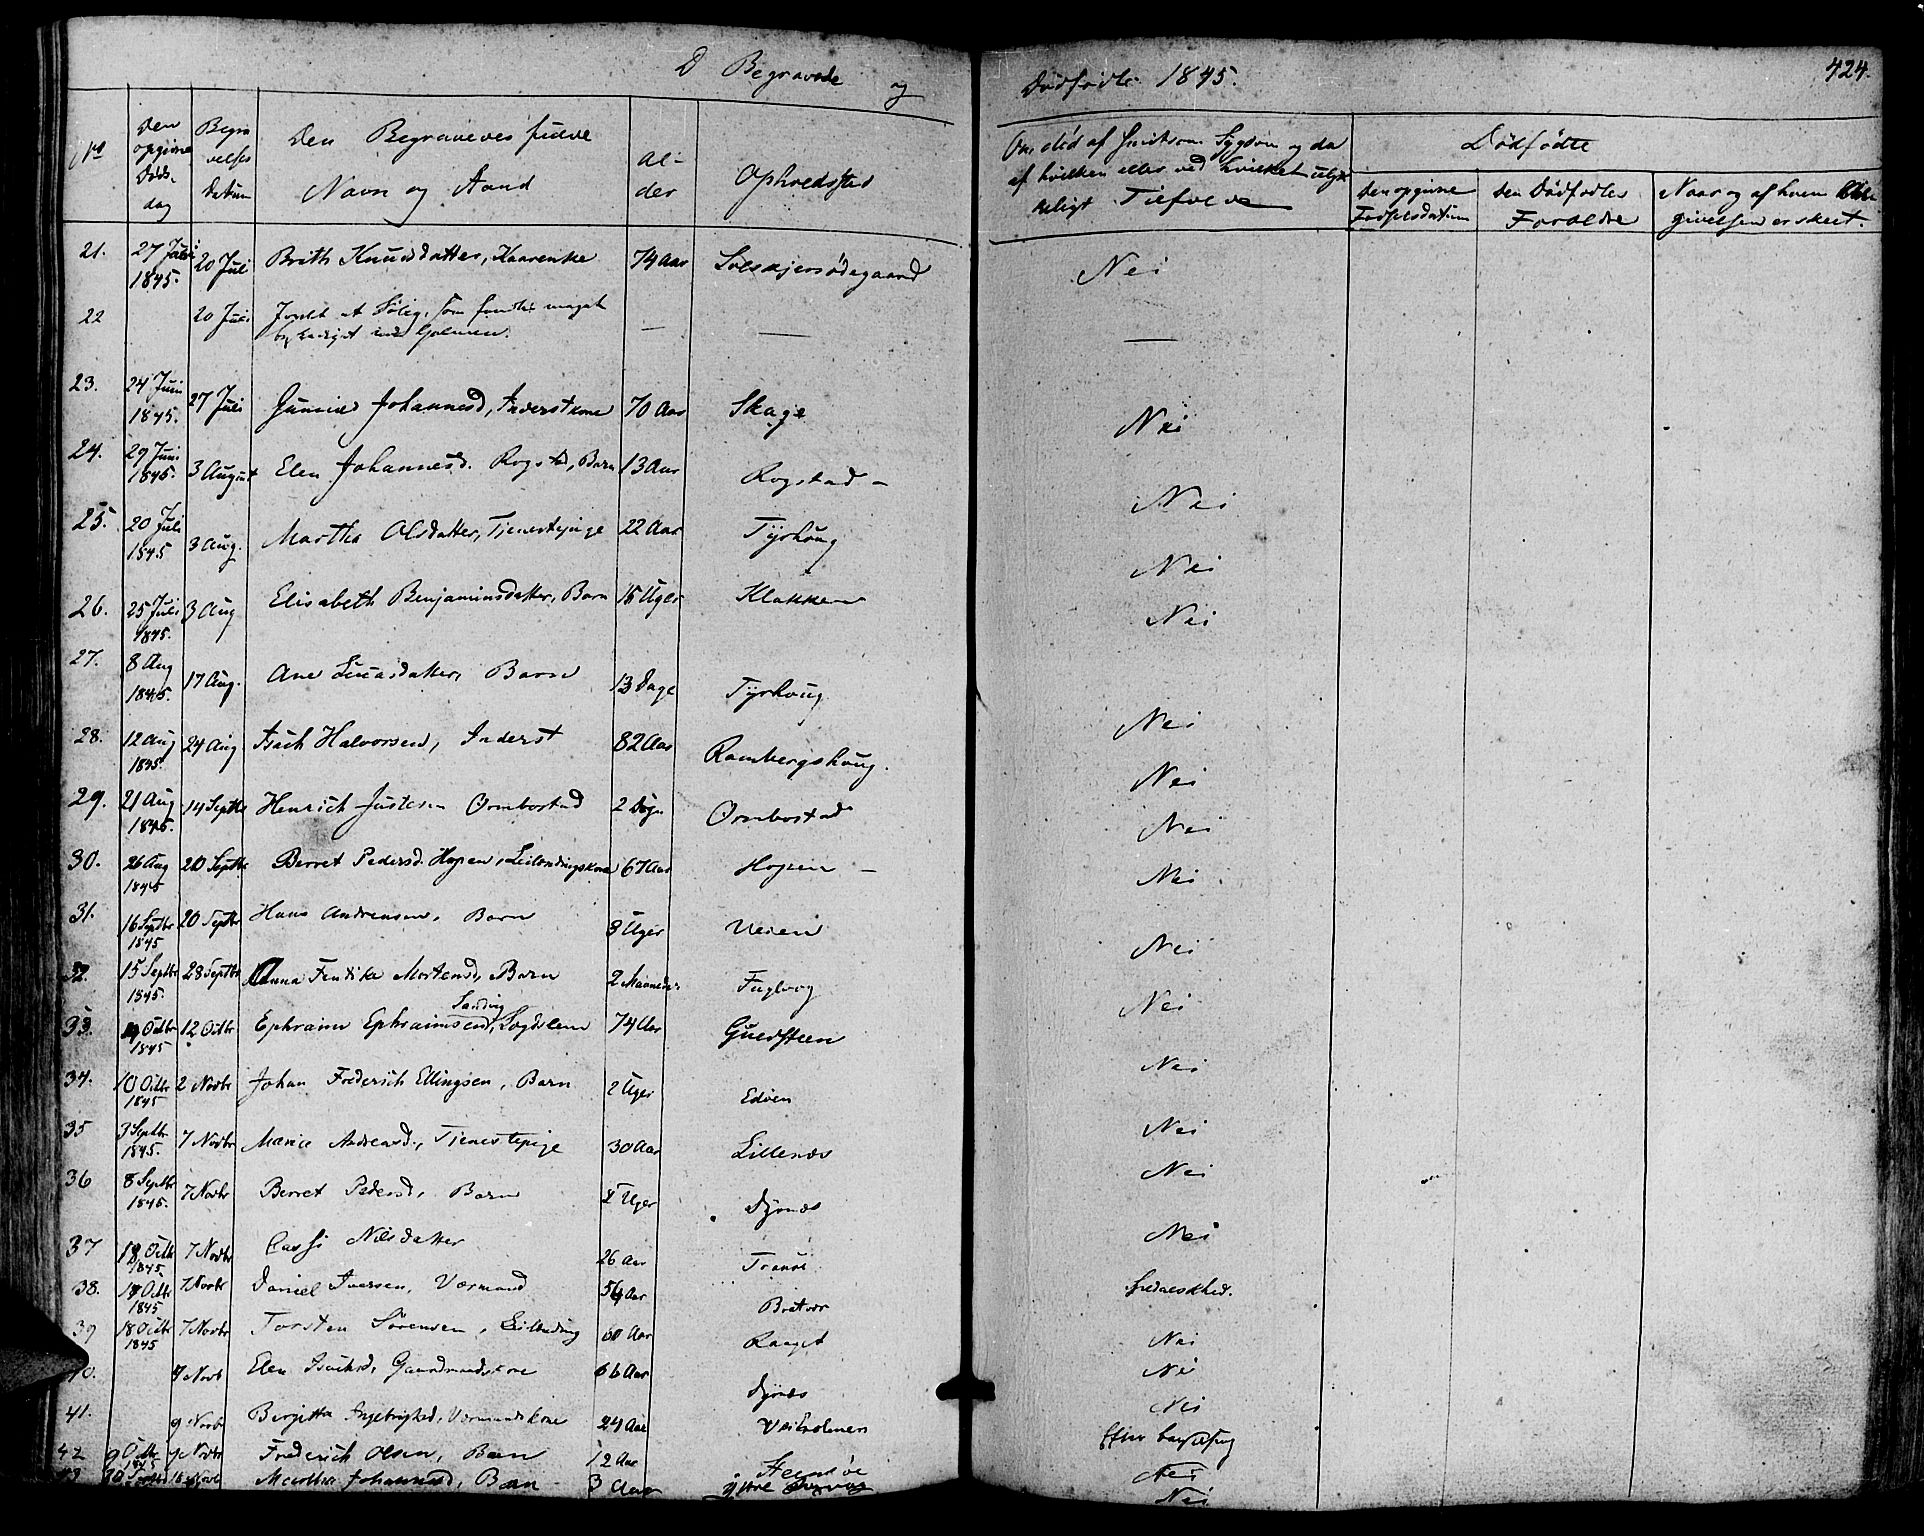 D Begravede og Dødfødte 1845. 424.
No
Den opgivne Døds-dag
Begravelses Datum
Den Begravedes fulde Navn og Stand
Al-der
Opholdssted
Om død af smitsom Sygdom og da af hvilken eller ved hvilket ulykkeligt Tilfælde
Dødfødte
Den opgivne Fødselsdatum
den Dødfødtes Forældre
Naar og af hvem givelsen er skeet.
21. 27 1845. 20 Juli Brith Knudsdatter, 74 Aar Solskjelsødegaard Nei
22 20 Juli som meget — — —
23. 24 Juni 1845. 27 Juli Johannesd, Inderstkone 70 Aar Skage Nei
24. 29 Juni 1845. 3 August Elen Johannesd. Rogstad, Barn 13 Aar Rogstad – Nei
25. 20 Juli 1845 3 Aug. Martha Olsdatter, Tjenestepige 22 Aar Tyrhoug Nei
26. 25 Juli 1845. 3 Aug Elisabeth Benjaminsdatter, Barn 15 Uger Klakken Nei
27. 8 Aug 1845. 17 Aug. Ane Lucasdatter, Barn 13 Dage Tyrhoug Nei
28. 12 Aug 1845. 24 Aug Isach Halvorsen, Inderst 82 Aar Rambergshoug. Nei
29. 21 Aug 1845. 14 Septbr Henrich Justesen Ornbostad 2 Ornbostad Nei
30. 26 Aug 1845 20 Septbr Berret Pedersd. Hopen, Leilendingskone 67 Aar Hopen – Nei
31. 16 Septbr 1845 20 Septbr Hans Andreasen, Barn 8 Uger Veien Nei
32. 15 Septbr 1845. 28 Septbr Anna Mortensd, Barn 2 Maaneder Fuglvog Nei
Sandvig
33. Octbr 1845 12 Octbr Ephraim Ephraimsen, Lægdslem 74 Aar Gjedsteen Nei
34. 10 Octbr 1845 2 Novbr Johan Frederich Ellingsen, Barn 2 Uger Edøen Nei
35 3 Septbr 1845. 7 Novbr Maria Andreasd., Tjenestepige 30 Aar Lillenæs Nei
36 8 Septbr 1845. 7 Novbr Berret Pedersd, Barn Uger Dyrnæs Nei
37 18 Octbr 1845. 7 Novbr Nilsdatter 26 Aar Tranøe Nei
38. 18 Octbr 1845 7 Novbr Daniel Iversen, Værmand 54 Aar Bratvær Spedalskhed.
39 18 Octbr 1845 7 Novbr Torsten Sørensen, Leilending 60 Aar Nei
40. 7 Novb Elen Isachsd, Gaardmandskone 66 Aar Dyrnæs Nei
41. 9 Novbr Birgitta Ingebrigtsd, Værmandskone 24 Aar Veiholmen Efter Barselseng
42 9 Octbr 1845 9 Novbr Frederich Olsen, Barn 12 Aar Nei
43 16 Novb Martha Johannesd, Barn 3 Aar ytre Nei